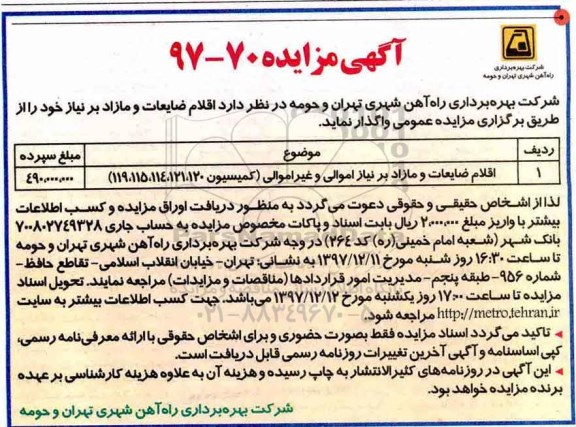 آگهی مزایده ۷۰-۹۷
شرکت بهره‌برداری
راه‌آهن شهری تهران و حومه
شرکت بهره‌برداری راه‌آهن شهری تهران و حومه در نظر دارد اقلام ضایعات و مازاد بر نیاز خود را از
طریق برگزاری مزایده عمومی واگذار نماید.
ردیف موضوع مبلغ سپرده
۱ اقلام ضایعات و مازاد بر نیاز اموالی و غیراموالی (کمیسیون ۱۱۹،۱۱۵،۱۱۴،۱۲۱،۱۲۰) ۴۹۰,۰۰۰,۰۰۰
لذا از اشخاص حقیقی و حقوقی دعوت می‌گردد به منظور دریافت اوراق مزایده و کسب اطلاعات
بیشتر با واریز مبلغ ۲,۰۰۰,۰۰۰ ریال بابت اسناد و پاکات مخصوص مزایده به حساب جاری ۷۰۰۸۰۲۷۴۹۳۲۸
بانک شهر (شعبه امام خمینی(ره) کد ۲۶۴) در وجه شرکت بهره‌برداری راه‌آهن شهری تهران و حومه
تا ساعت ۱۶:۳۰ روز شنبه مورخ ۱۳۹۷/۱۲/۱۱ به نشانی: تهران- خیابان انقلاب اسلامی- تقاطع حافظ-
شماره ۹۵۶- طبقه پنجم- مدیریت امور قراردادها (مناقصات و مزایدات) مراجعه نمایند. تحویل اسناد
مزایده تا ساعت ۱۷:۰۰ روز یکشنبه مورخ ۱۳۹۷/۱۲/۱۲ می‌باشد. جهت کسب اطلاعات بیشتر به سایت
http://metro.tehran.ir مراجعه شود.
◄ تاکید می‌گردد اسناد مزایده فقط بصورت حضوری و برای اشخاص حقوقی با ارائه معرفی‌نامه رسمی،
کپی اساسنامه و آگهی آخرین تغییرات روزنامه رسمی قابل دریافت است.
◄ این آگهی در روزنامه‌های کثیرالانتشار به چاپ رسیده و هزینه آن به علاوه هزینه کارشناسی بر عهده
برنده مزایده خواهد بود.
شرکت بهره‌برداری راه‌آهن شهری تهران و حومه